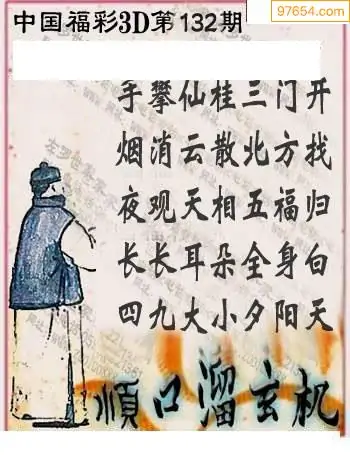 中国福彩3D第132期
97654.com
手攀仙桂三门开
烟消云散北方找
夜观天相五福归
长长耳朵全身白
四九大小夕阳天
順口溜玄机